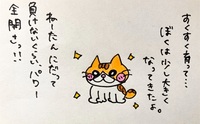 すくすく育って…
ぼくは少し大きく
なってきたよ。
ねーたんにだって
負けないぐらい、パワー
全開さっ!!